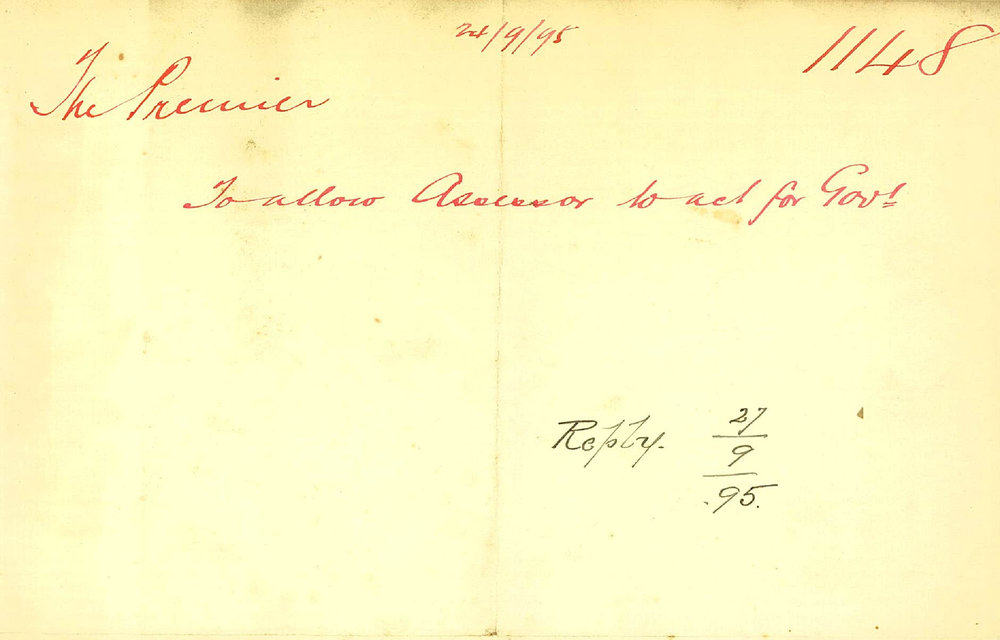 24/9/95
1148
The Premier
To allow Assessor to act for Govt
Reply. 27
9
.95.